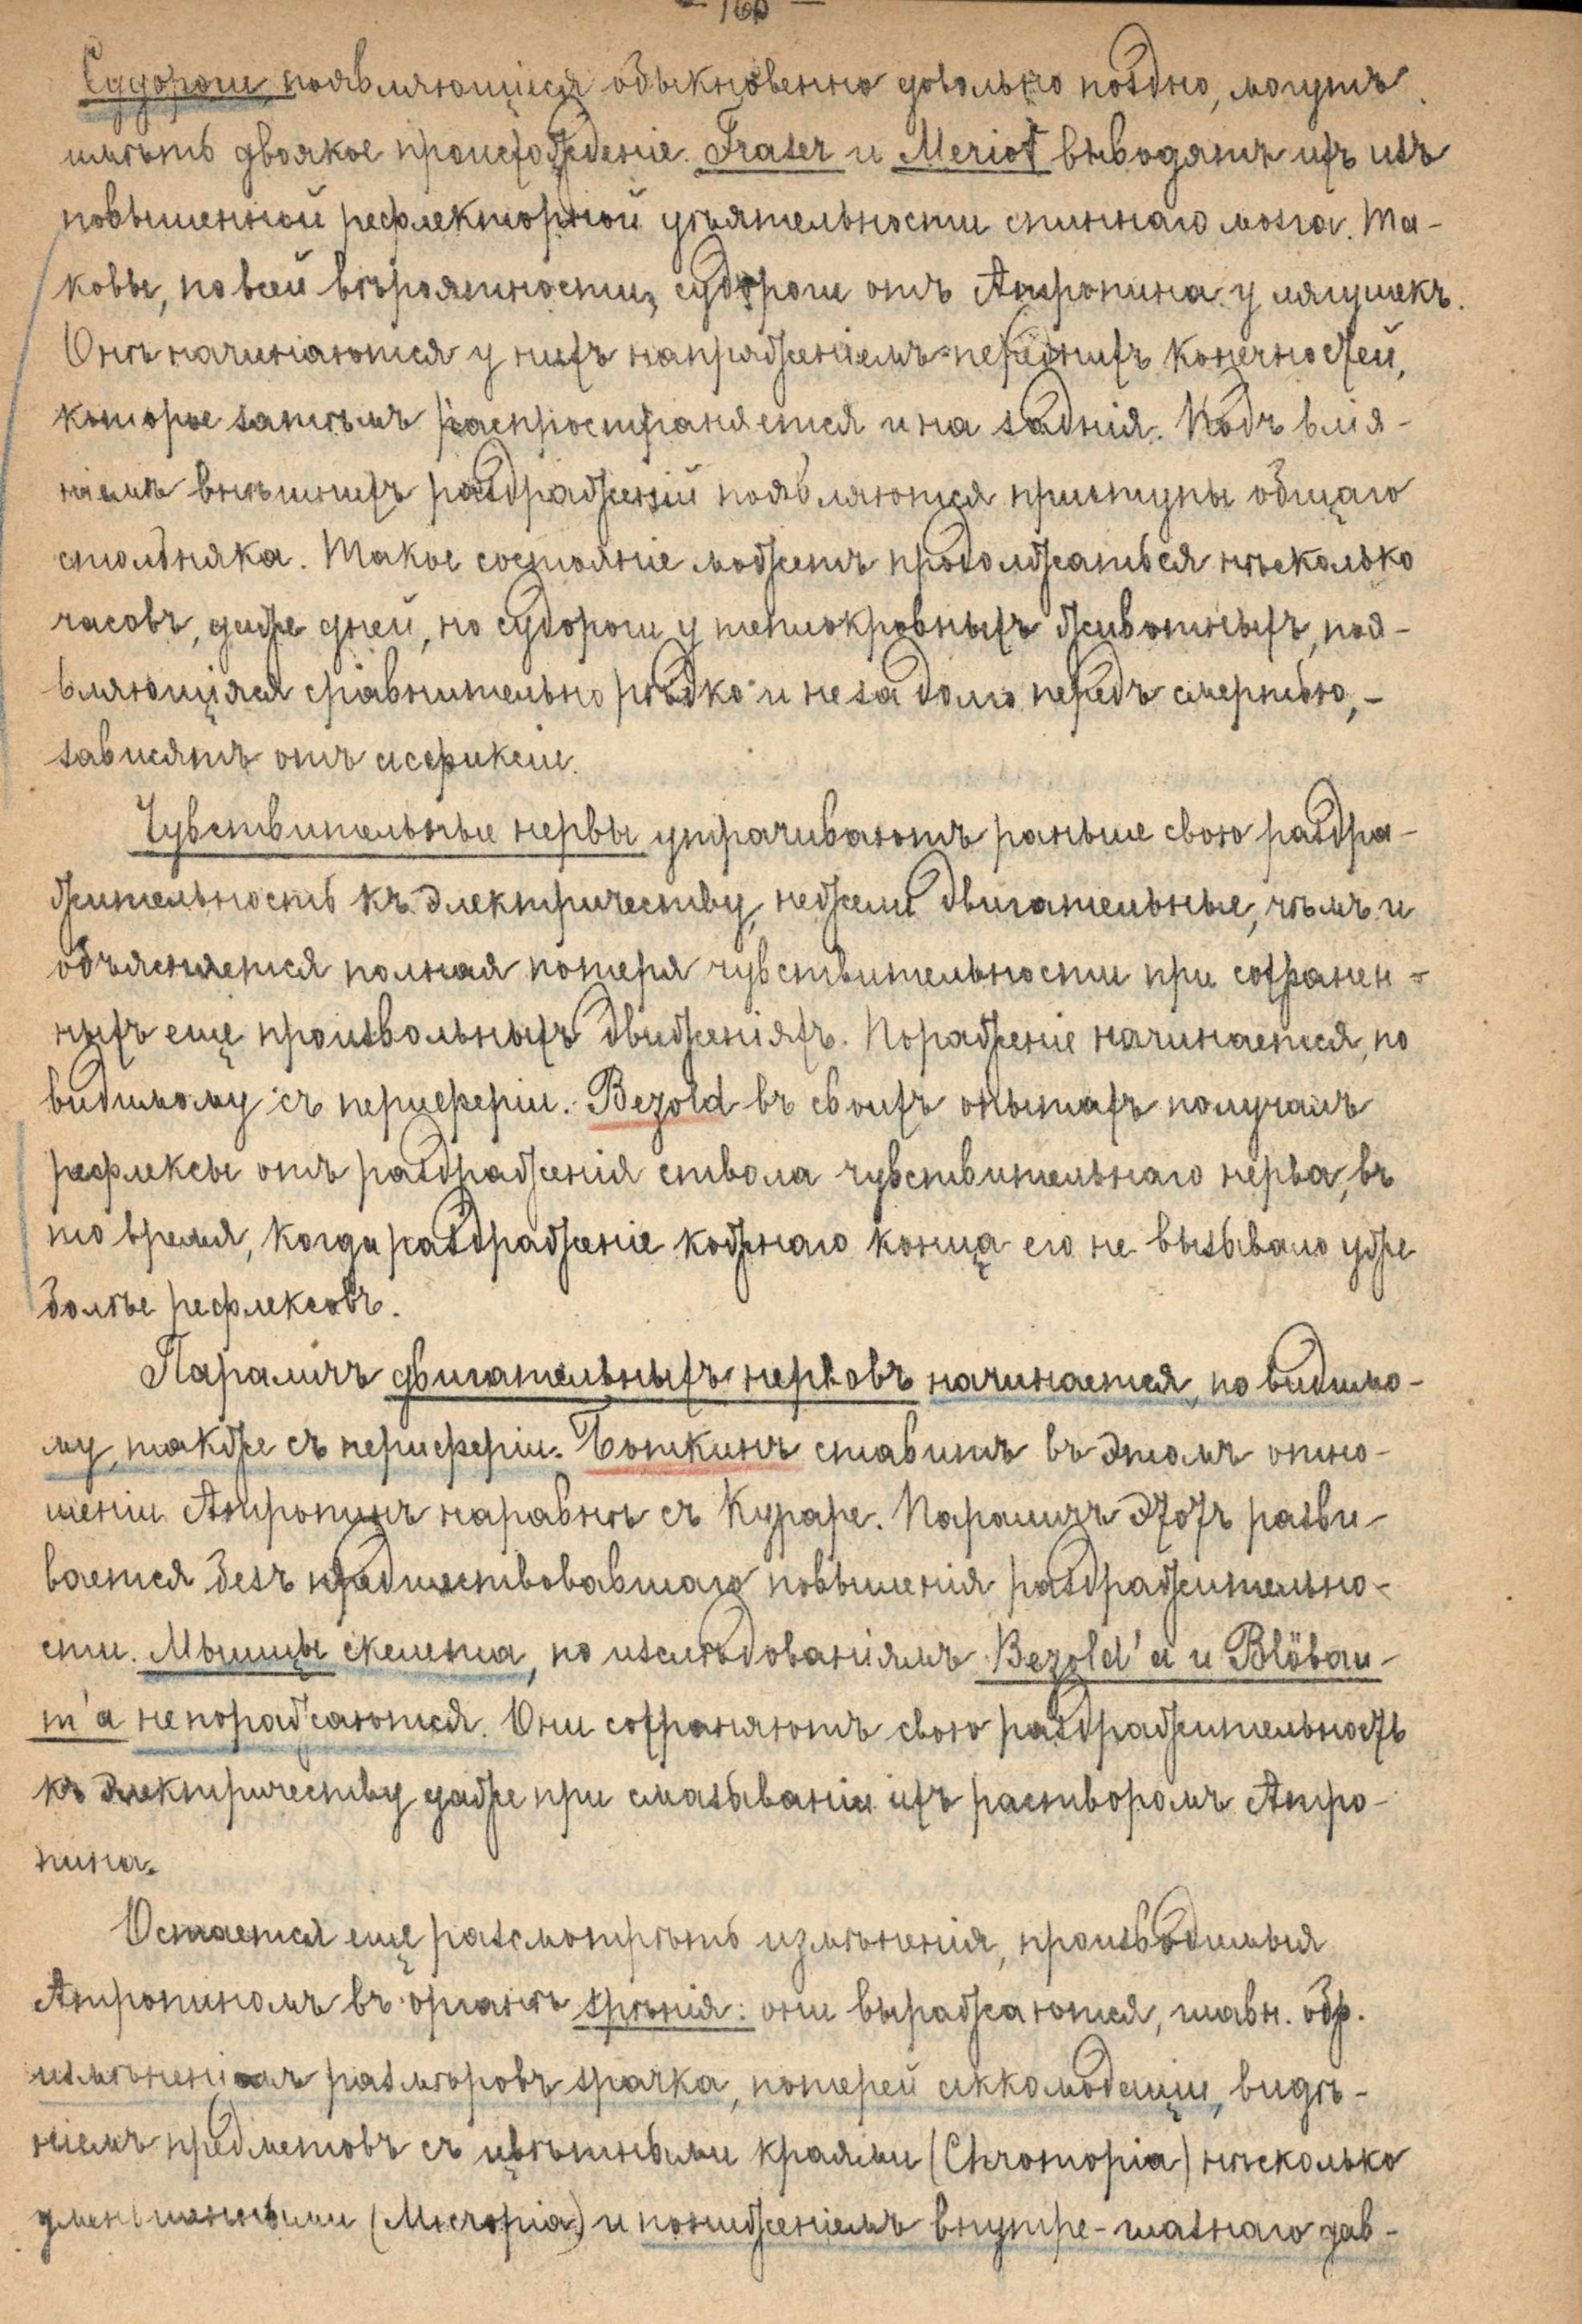 — 160 —
Судороги, появляющіеся обыкновенно довольно поздно, могутъ
имѣть двоякое происхожденіе. Fraser и Meriot выводятъ ихъ изъ
повышенной рефлекторной дѣятельности спиннаго мозга. Та-
ковы, по всей вѣроятности, судороги отъ Атропина у лягушекъ.
Онѣ начинаются у нихъ напряженіемъ переднихъ конечностей,
которые затѣмъ распространяется и на заднія. Подъ влія-
ніемъ внѣшнихъ раздраженій появляются приступы общаго
столбняка. Такое состояніе можетъ продолжаться нѣсколько
часовъ, даже дней, но судороги у теплокровныхъ животныхъ, поя-
вляющіяся сравнительно рѣдко и не за долго передъ смертью, -
зависятъ отъ асфиксіи.
Чувствительные нервы утрачиваютъ раньше свою раздра-
жительность къ электричеству, нежели двигательные, чѣмъ и
объясняется полная потеря чувствительности при сохранен-
ныхъ еще произвольныхъ движеніяхъ. Пораженіе начинается, по
видимому съ периферіи. Bezold въ своихъ опытахъ получалъ
рефлексы отъ раздраженія ствола чувствительнаго нерва, въ
то время, когда раздраженіе кожнаго конца его не вызывало уже
болѣе рефлексовъ.
Параличъ двигательныхъ нервовъ начинается, по видимо-
му, также съ периферіи. Боткинъ ставитъ въ этомъ отно-
шеніи Атропинъ наравнѣ съ Кураре. Параличъ этотъ разви-
вается безъ предшествовавшаго повышенія раздражительно-
сти. Мышцы скелета, по изслѣдованіямъ Bezold'а и Blöbau-
m'а не поражаются. Они сохраняютъ свою раздражительность
къ электричеству даже при смазываніи ихъ растворомъ Атро-
пина.
Остается еще разсмотрѣть измѣненія, производимыя
Атропиномъ въ органѣ зрѣнія: они выражаются, главн. обр.
измѣненіемъ размѣровъ зрачка, потерей аккомодаціи, видѣ-
ніемъ предметовъ съ цвѣтными краями (Chromopia) нѣсколько
уменьшенными (Micropia) и пониженіемъ внутре-глазнаго дав-